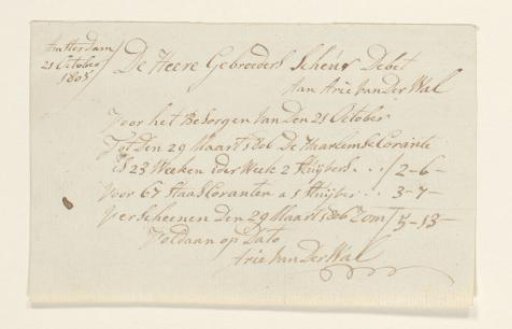 Amsterdam
21 October
1805
De Heere Gebroeders Scheur Debet
Aan Arie Van Der Wal
Voor het Besorgen Van Den 21 October
Tot Den 29 Maart 1806 De Haarlemse Corante
is 23 Weeken ider Week 2 Stuijvers . . . / 2-6-
Voor 67 Staads Coranten a 1 Stuijver . . . 3-7-
Verscheenen Den 29 Maart 1806 Zom / 5-13-
Voldaan op Dato
Arie Van Der Wal